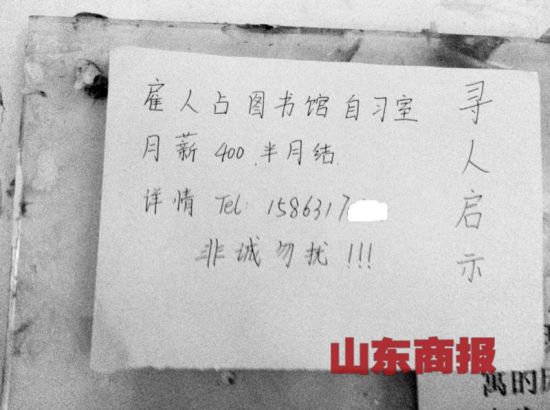 寻人启示
雇人占图书馆自习室
月薪400.半月结.
详情 Tel: 1586317
非诚勿扰!!!
山东商报
寓的